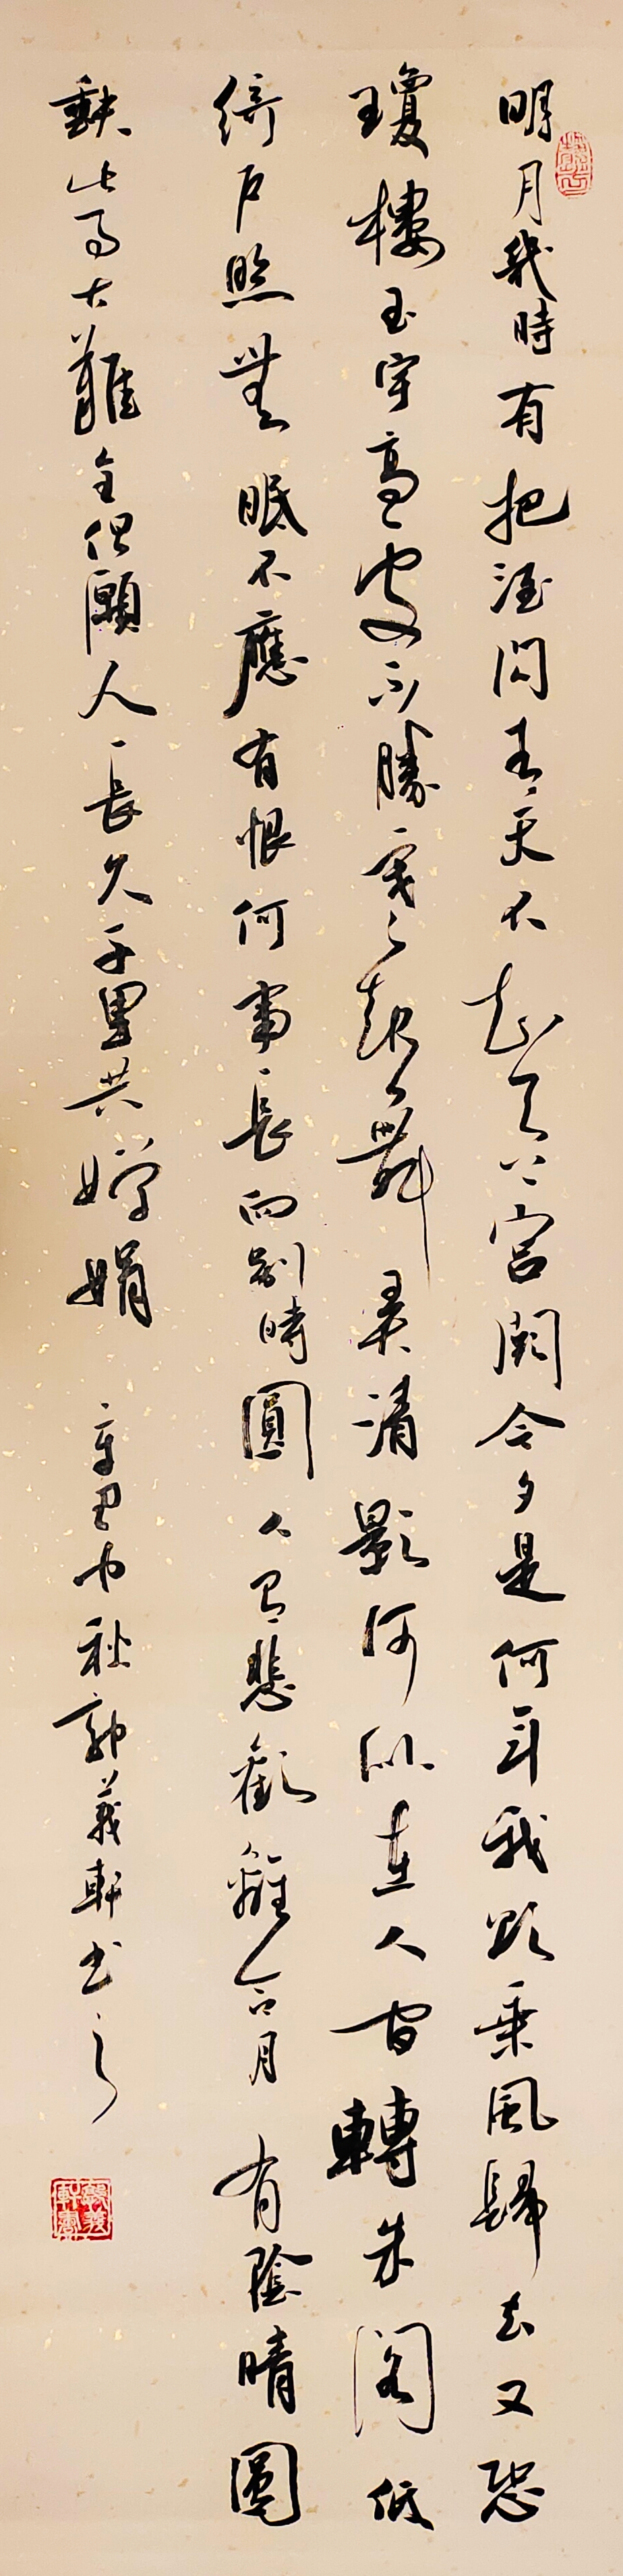 明月幾時有把酒問青天不知天上宮闕今夕是何年我欲乘風歸去又恐
瓊樓玉宇高處不勝寒起舞弄清影何似在人間轉朱閣低
綺戶照無眠不應有恨何事長向別時圓人有悲歡離合月有陰晴圓
缺此事古難全但願人長久千里共嬋娟
辛丑中秋郭義軒書之